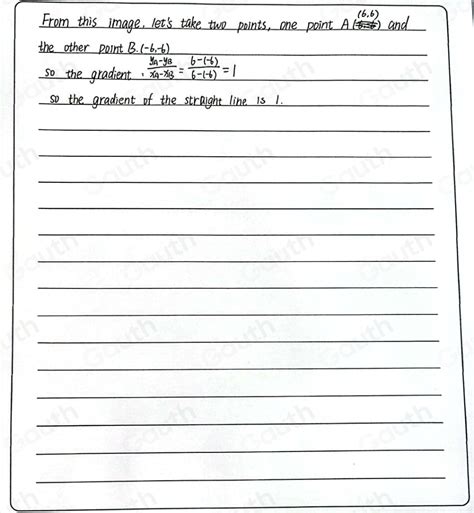 (6,6)
From this image, let's take two points, one point A and
the other point B. (-6,-6)
so the gradient : yA-yB / xA-xB = 6-(-6) / 6-(-6) = 1
so the gradient of the straight line is 1.